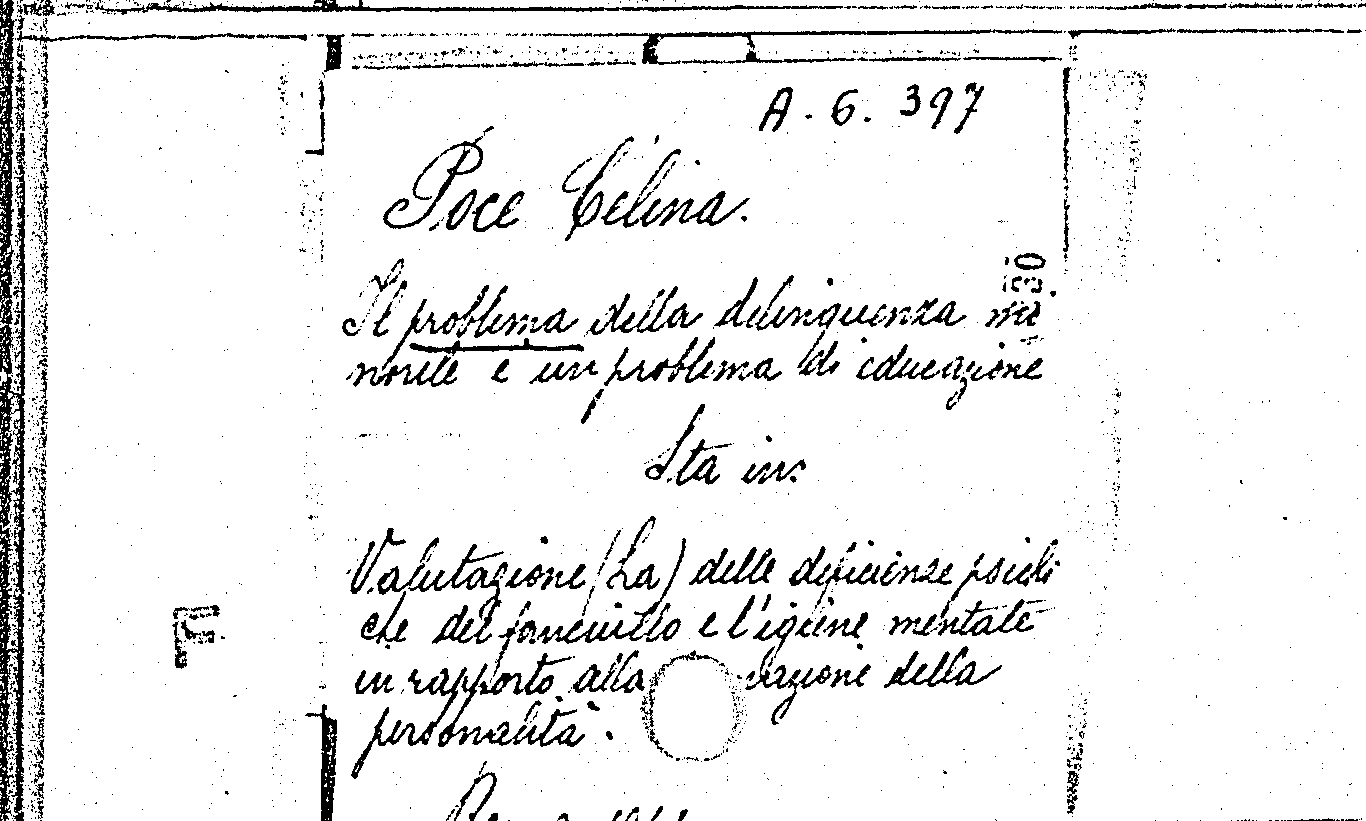 A. 6. 397
Poce Celina.
Il problema della delinquenza mi
norile è un problema di educazione
Sta in:
Valutazione (La) delle deficienze psichi
che del fanciullo e l'igiene mentale
in rapporto alla azione della
personalità.
F